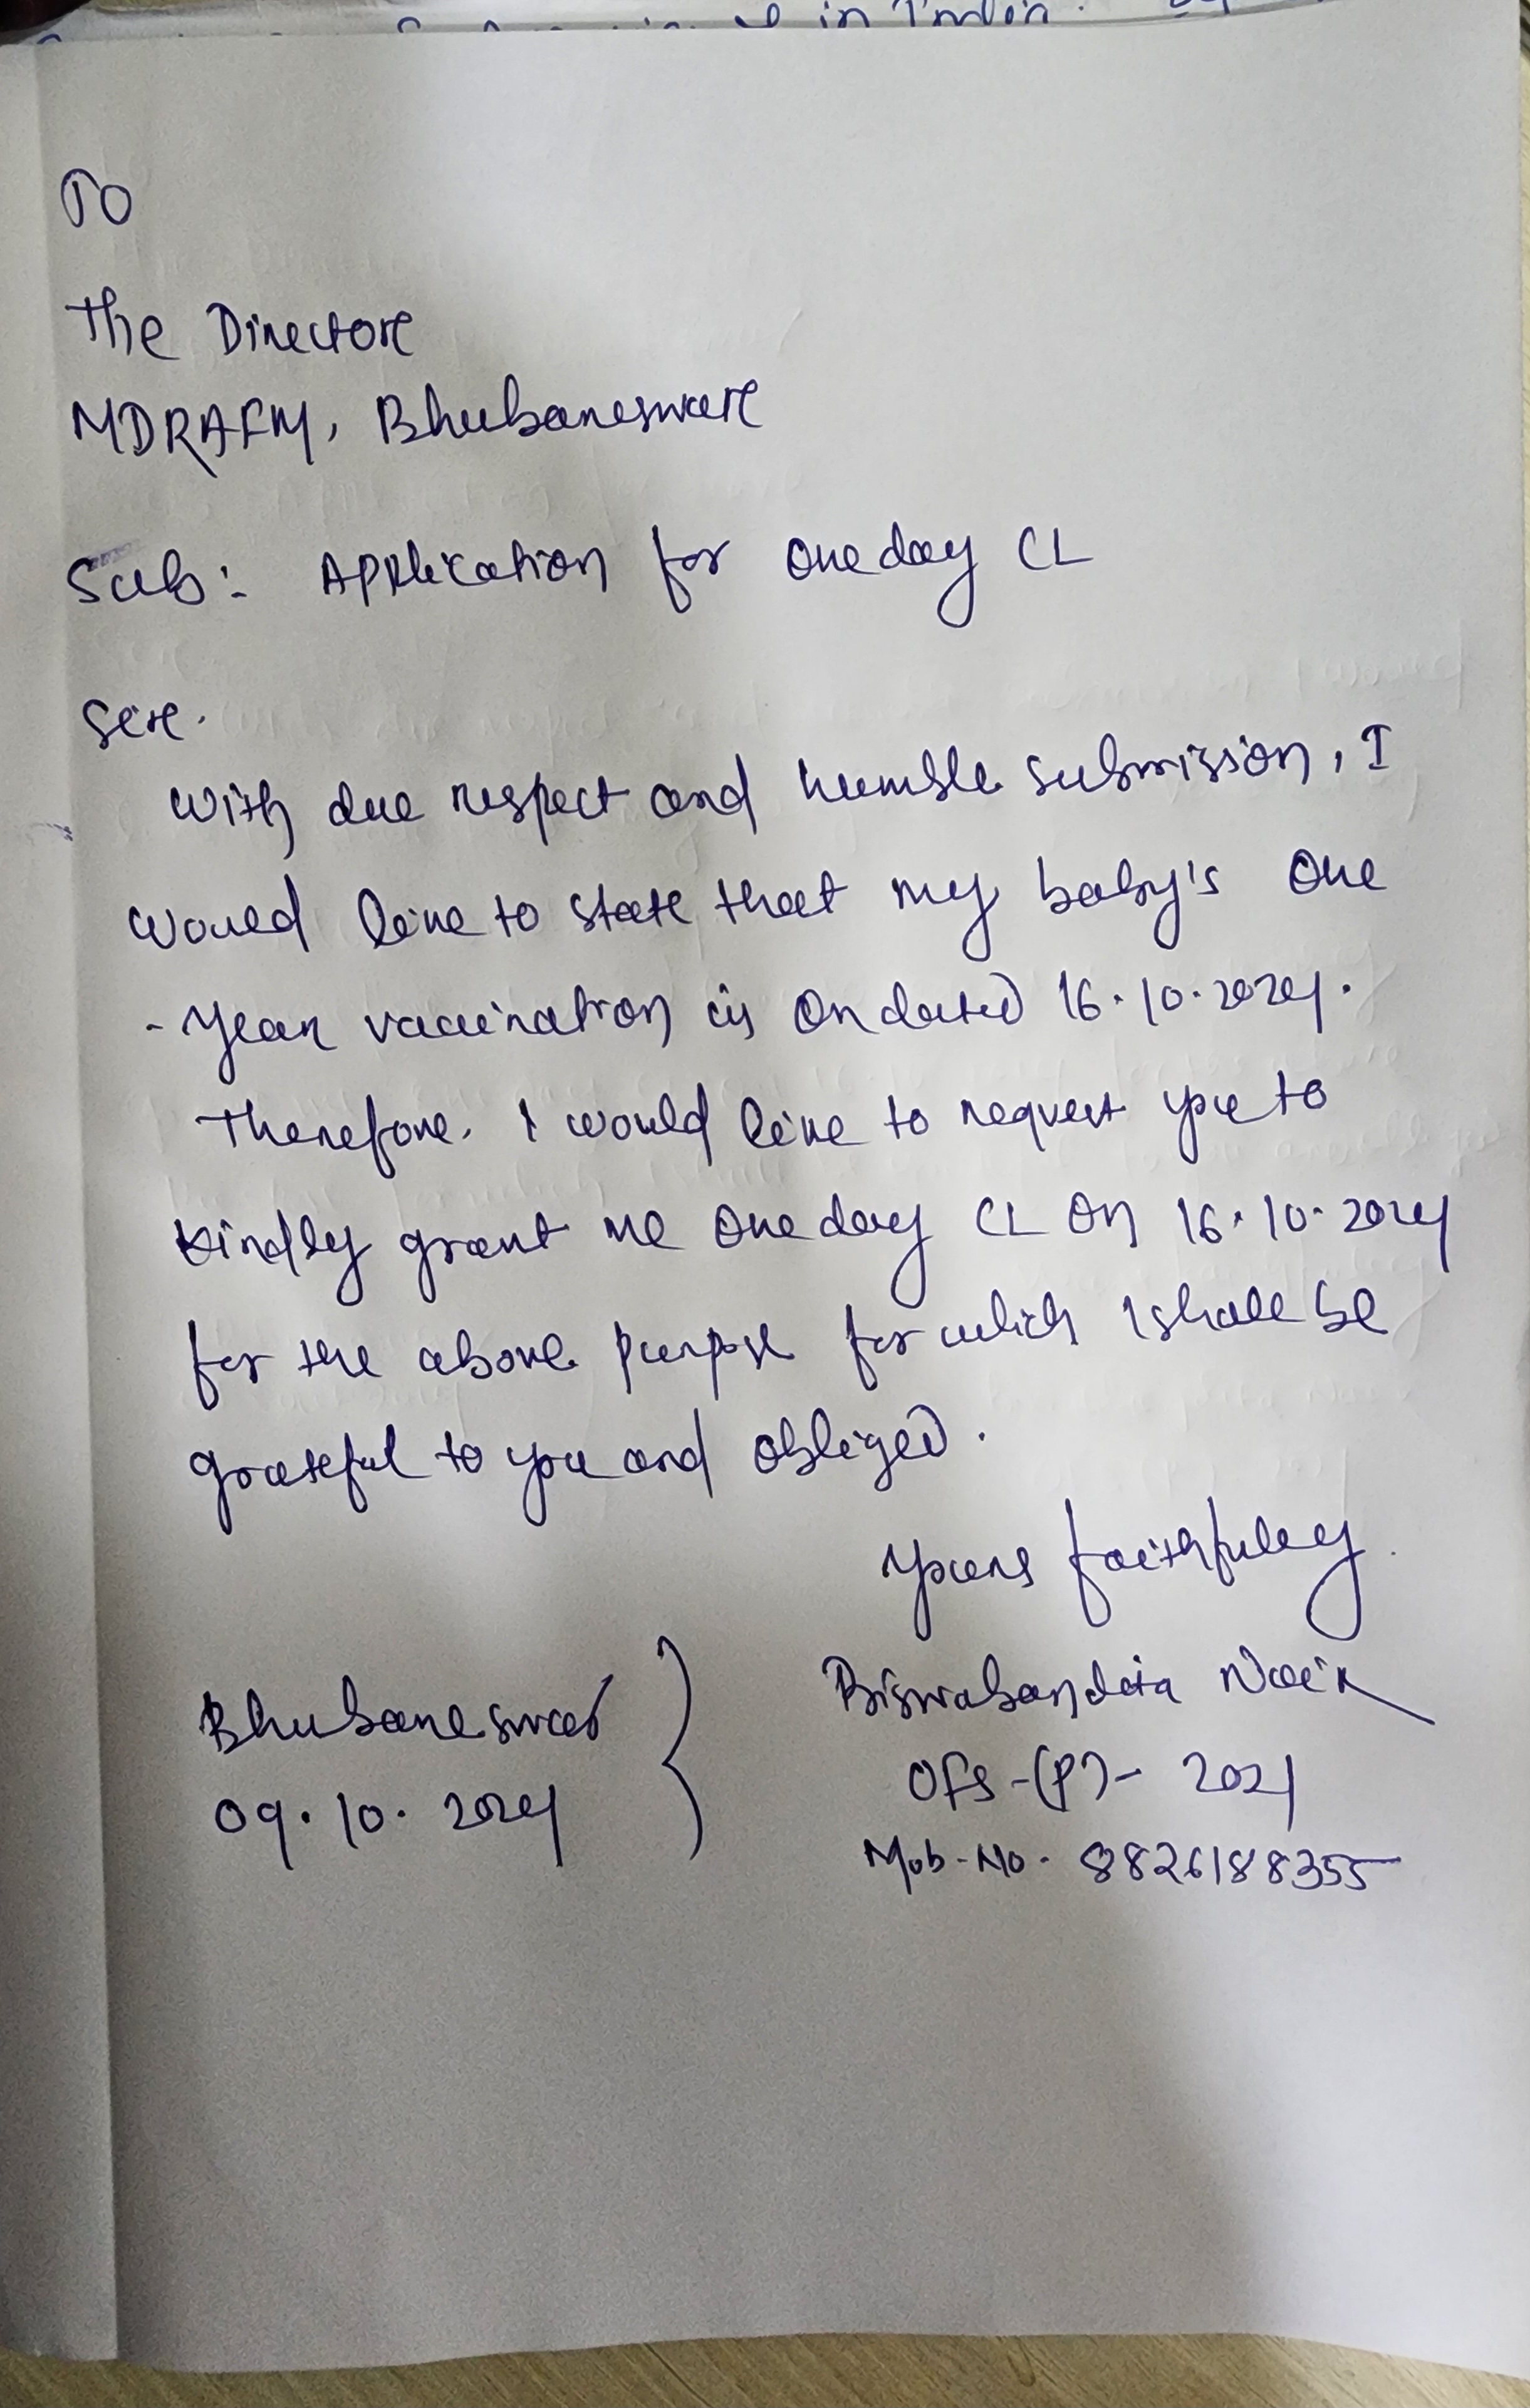 To
The Director
MDRAFM, Bhubaneswar
Sub: Application for one day CL
Sir.
With due respect and humble submission, I
would like to state that my baby's one
- Year vaccination is on dated 16.10.2024.
Therefore. I would like to request you to
kindly grant me one day CL on 16.10.2024
for the above purpose for which I shall be
grateful to you and obliged.
Yours faithfully
Bhubaneswar
09.10.2024
Biswabandita Naik
OFS-(P)- 2021
Mob-No. 8826188355